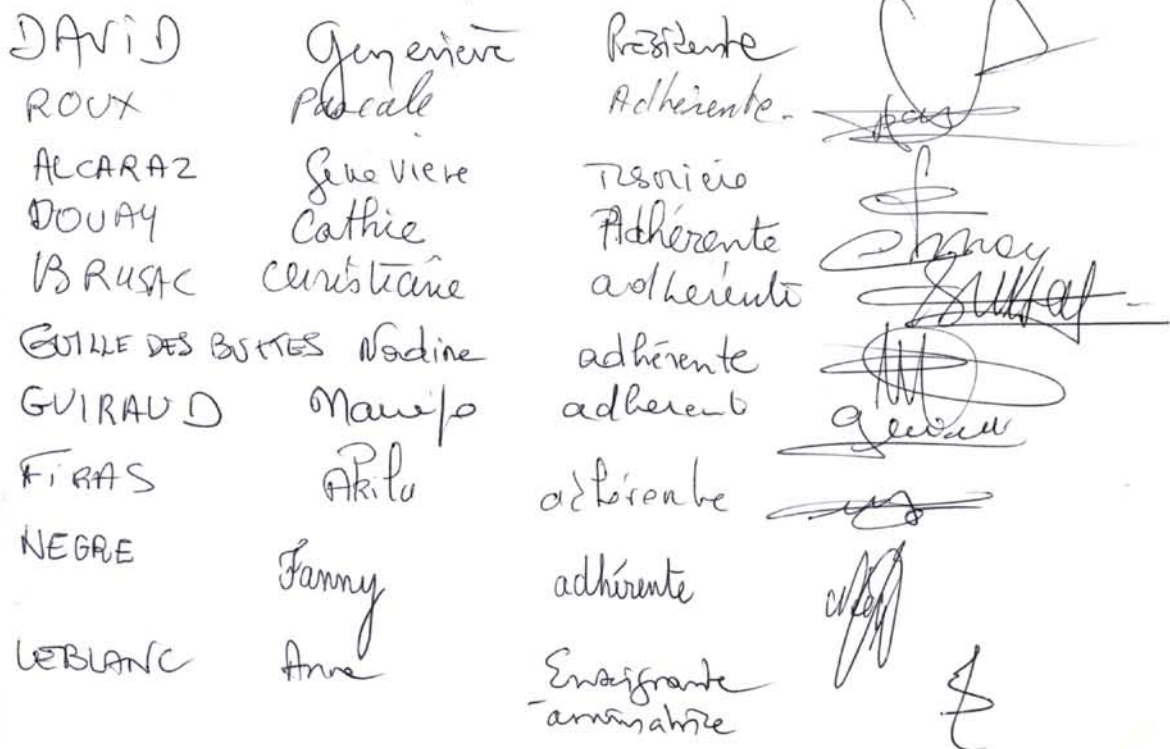 DAVID Geneviève Présidente
ROUX Pascale Adhérente.
ALCARAZ Geneviève
DOUAY Cathie Adhérente
BRUSAC Christiane adhérente
GUILLE DES BUTTES Nadine adhérente
GUIRAUD adherente
FIRAS Akila adhérente
NEGRE Fanny adhérente
LEBLANC Anne Enseignante
-animatrice